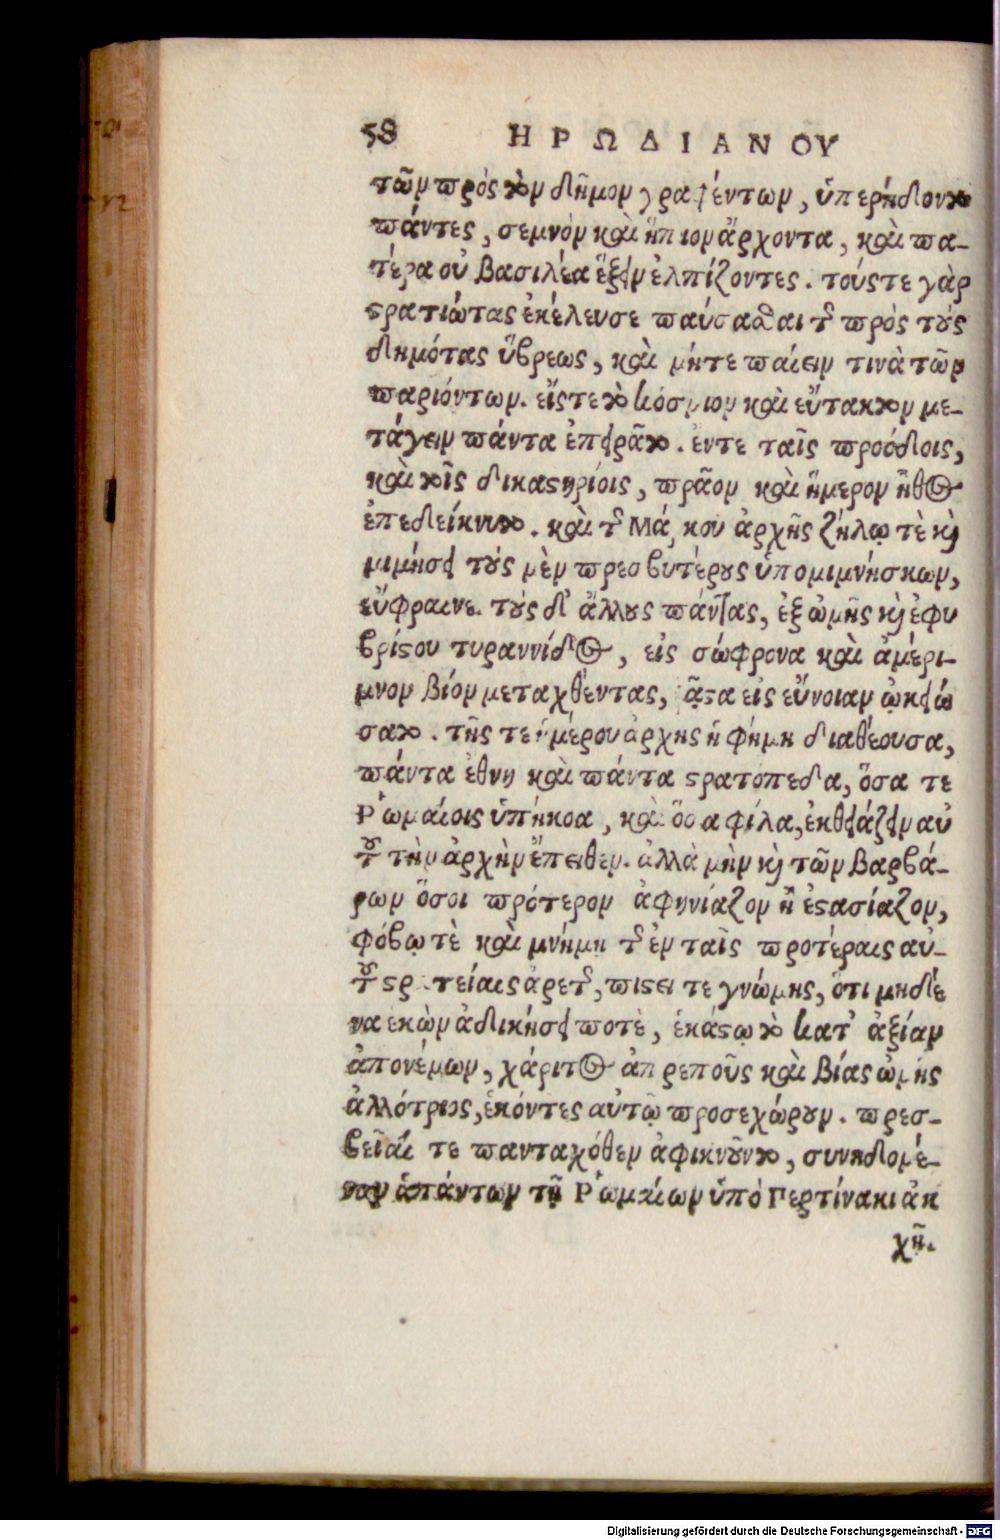 58 ΗΡΩΔΙΑΝΟΥ
τῶν πρὸς τὸν δῆμον γραφέντων, ὑπερήδοντο
πάντες, σεμνὸν καὶ ἤπιον ἄρχοντα, καὶ πα-
τέρα οὐ βασιλέα ἕξειν ἐλπίζοντες. τούς τε γὰρ
στρατιώτας ἐκέλευσε παύσασθαι τῆς πρὸς τοὺς
δημότας ὕβρεως, καὶ μήτε παίειν τινὰ τῶν
παριόντων. εἴς τε τὸ κόσμιον καὶ εὔτακτον με-
τάγειν πάντα ἐπειρᾶτο. ἔν τε ταῖς προόδοις,
καὶ τοῖς δικαστηρίοις, πρᾶον καὶ ἥμερον ἦθος
ἐπεδείκνυτο. καὶ τῆς Μάρκου ἀρχῆς ζήλῳ τὲ καὶ
μιμήσει τοὺς μὲν πρεσβυτέρους ὑπομιμνήσκων,
εὔφραινε. τοὺς δ' ἄλλους πάντας, ἐξ ὠμῆς καὶ ἐφυ
βρίστου τυραννίδος, εἰς σώφρονα καὶ ἀμέρι-
μνον βίον μεταχθέντας, ῥᾷστα εἰς εὔνοιαν ᾠκειώ
σατο. τῆς τε ἡμέρου ἀρχῆς ἡ φήμη διαθέουσα,
πάντα ἔθνη καὶ πάντα στρατόπεδα, ὅσα τε
Ῥωμαίοις ὑπήκοα, καὶ ὅσα φίλα, ἐκθειάζειν αὐ
τοῦ τὴν ἀρχὴν ἔπειθεν. ἀλλὰ μὴν καὶ τῶν βαρβά-
ρων ὅσοι πρότερον ἀφηνίαζον ἢ ἐστασίαζον,
φόβῳ τὲ καὶ μνήμῃ τῆς ἐν ταῖς προτέραις αὐ-
τοῦ στρατείαις ἀρετῆς, πίστει τε γνώμης, ὅτι μηδέ
να ἑκὼν ἀδικήσει ποτὲ, ἑκάστῳ τὸ κατ' ἀξίαν
ἀπονέμων, χάριτος ἀπρεποῦς καὶ βίας ὠμῆς
ἀλλότριος, ἑκόντες αὐτῷ προσεχώρουν. πρεσ-
βεῖαί τε πανταχόθεν ἀφικνοῦντο, συνηδομέ-
νων ἁπάντων τῇ Ῥωμαίων ὑπὸ Περτίνακι ἀρ
χῇ.
Digitalisierung gefördert durch die Deutsche Forschungsgemeinschaft - DFG